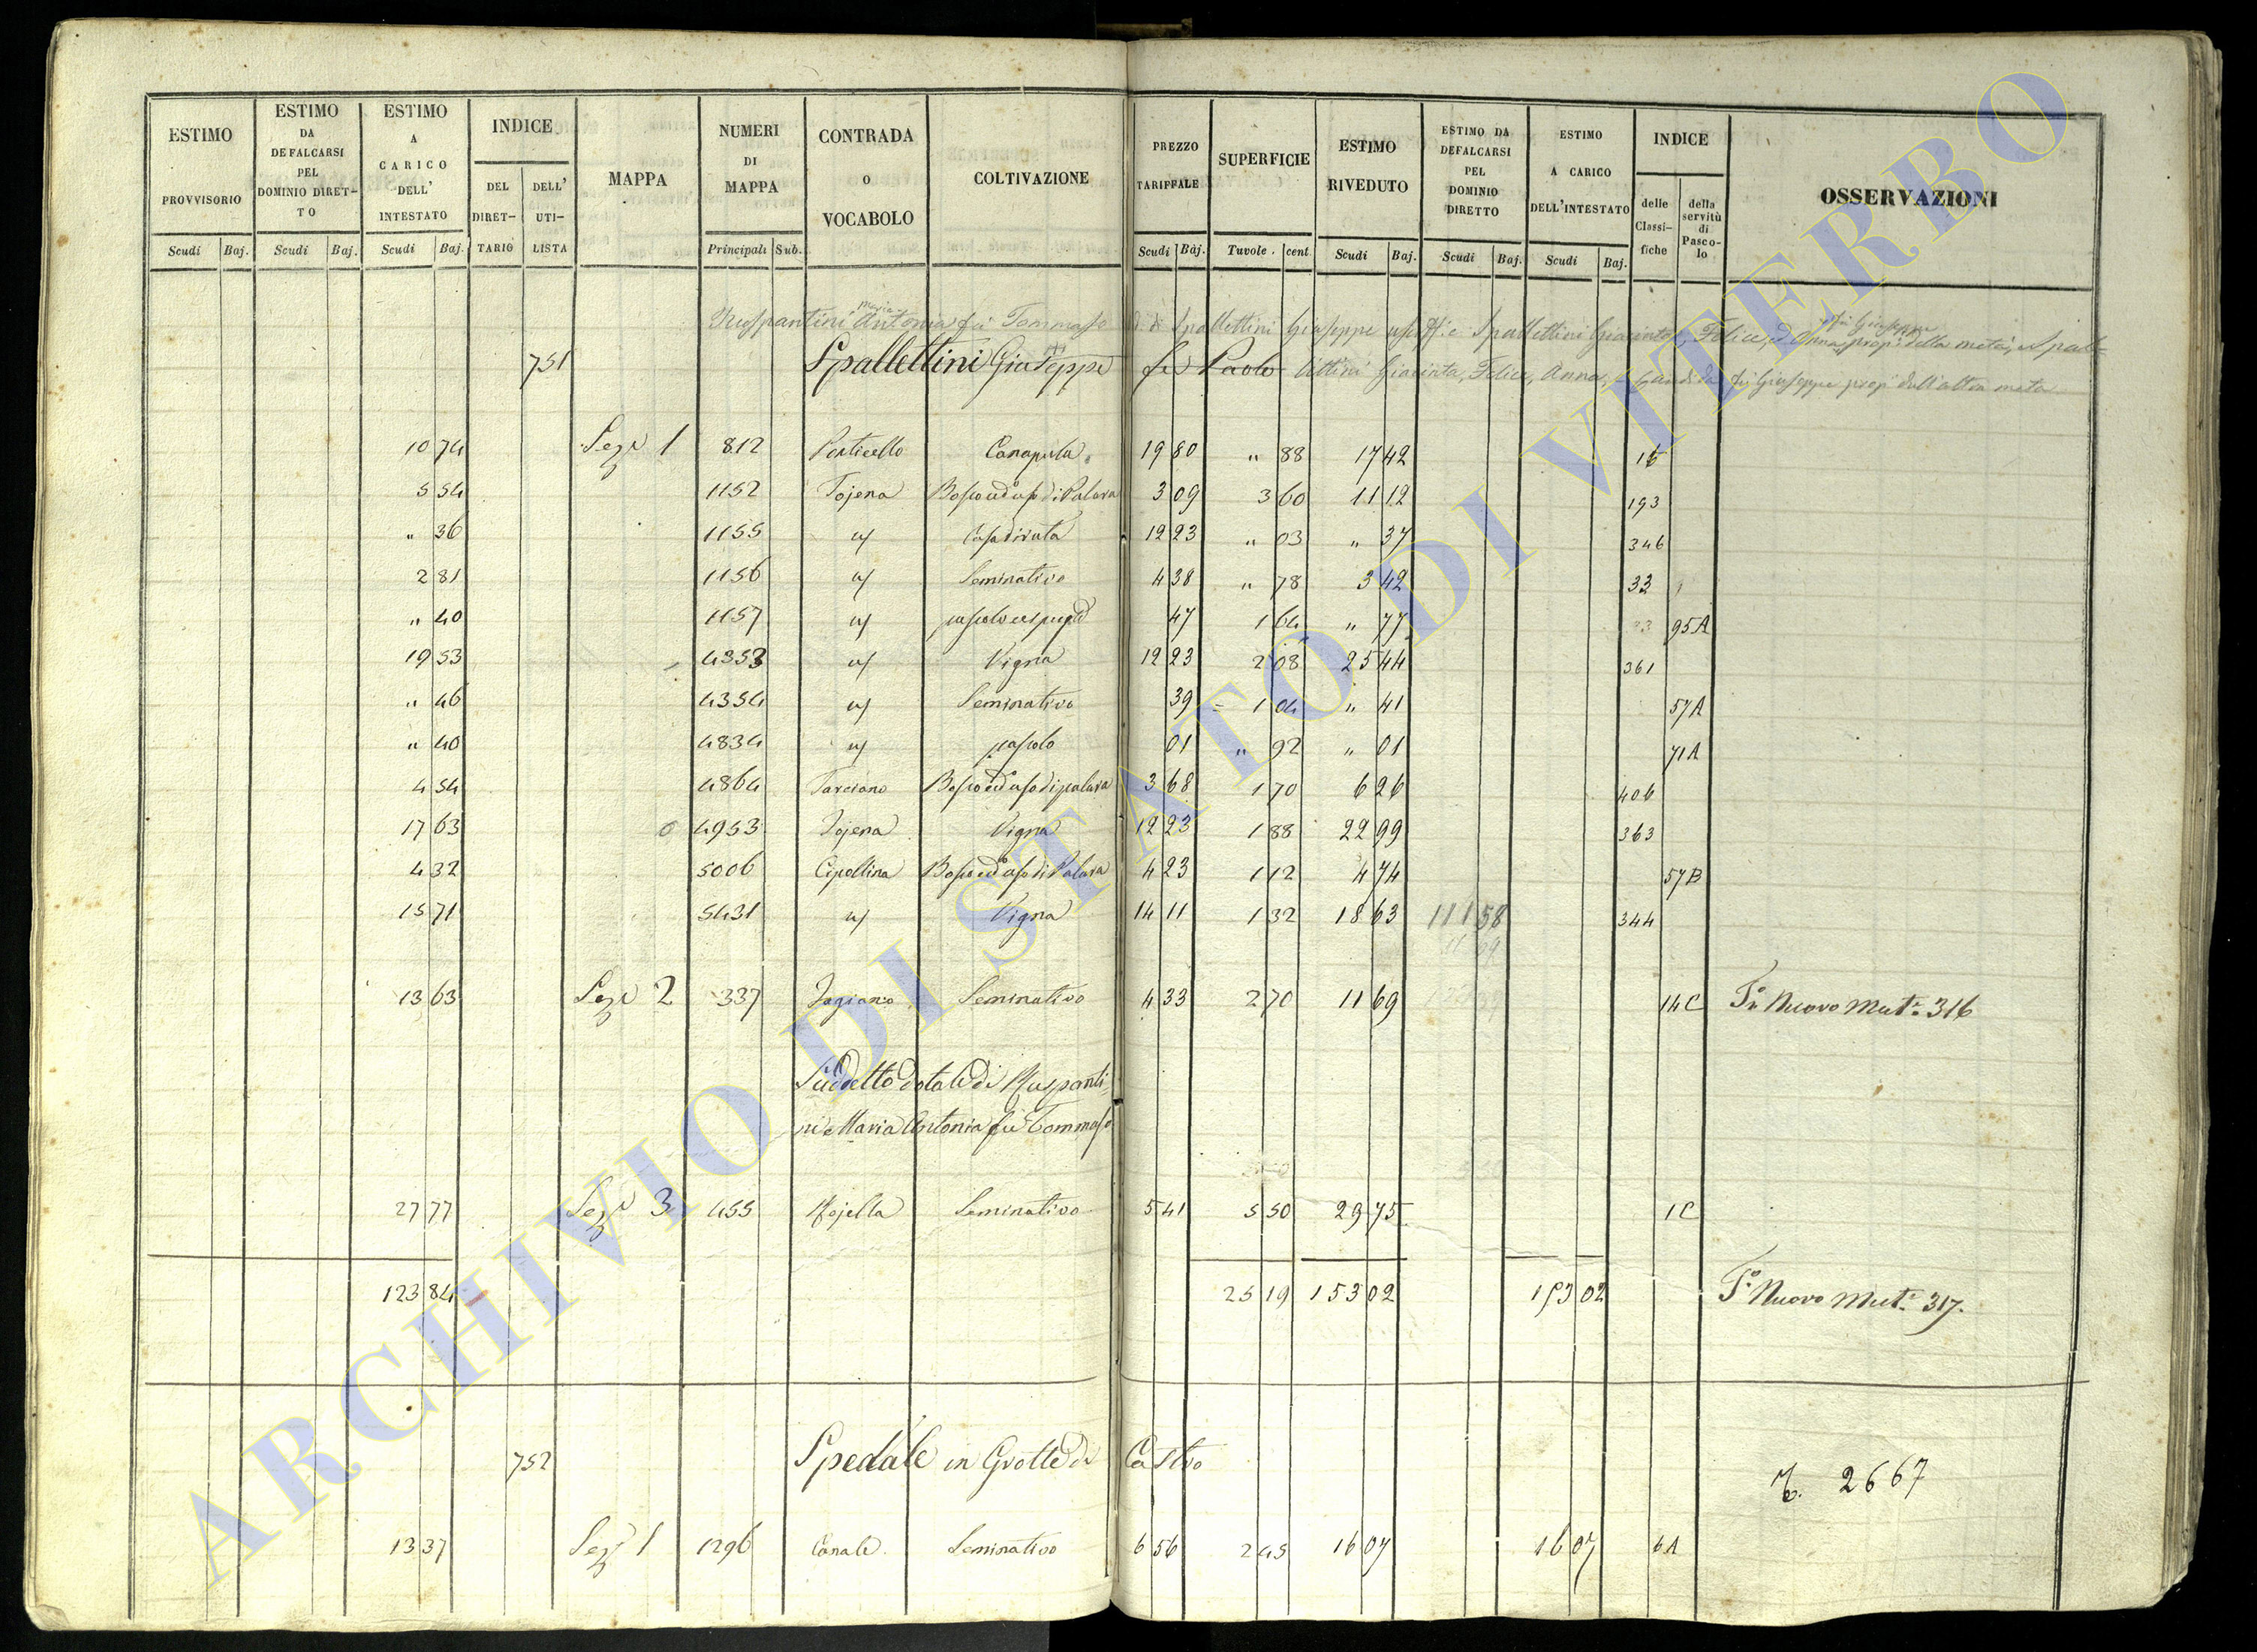 ESTIMO PROVVISORIO Scudi Baj.
ESTIMO DA DEFALCARSI PEL DOMINIO DIRET-TO Scudi Baj.
ESTIMO A CARICO DELL' INTESTATO Scudi Baj.
INDICE DEL DIRET-TARIO DELL' UTI-LISTA
MAPPA
NUMERI DI MAPPA Principali Sub.
CONTRADA O VOCABOLO
COLTIVAZIONE
PREZZO TARIFFALE Scudi Baj.
SUPERFICIE Tavole. cent.
ESTIMO RIVEDUTO Scudi Baj.
ESTIMO DA DEFALCARSI PEL DOMINIO DIRETTO Scudi Baj.
ESTIMO A CARICO DELL'INTESTATO Scudi Baj.
INDICE delle Classi-fiche della servitù di Pasco-lo
OSSERVAZIONI
Ruspantini Maria Antonia fu Tommaso Spallettini Giuseppe Spallettini Giacinta, Felice, ed Anna fu Giuseppe prop. della metà, e Spal-
751 Spallettini Giuseppe fu Paolo lettini Giacinta, Felice, Anna, fu Giuseppe prop. dell'altra metà
10 74 Sez. 1 812 Ponticello Canapula 19 80 " 88 17 42 15
5 54 1152 Tojena Bosco ced. uso di Palara 3 09 3 60 11 12 193
" 36 1155 " Casa diruta 12 23 " 03 " 37 346
2 81 1156 " Seminativo 4 38 " 78 3 42 33
" 40 1157 " pascolo cespugl. 47 1 64 " 77 95A
19 53 4353 " Vigna 12 23 2 08 25 44 361
" 46 4354 " Seminativo 39 1 04 " 41 57A
" 40 4834 " pascolo 01 " 92 " 01 71A
4 54 4864 Tarciano Bosco ced. uso di palara 3 68 1 70 6 26 406
17 63 4953 Tojena Vigna 12 23 1 88 22 99 363
4 32 5006 Cipollina Bosco ced. uso di Palara 4 23 1 12 4 74 57B
15 71 5431 " Vigna 14 11 1 32 18 63 111 58 344
13 63 Sez. 2 337 Jagiano Seminativo 4 33 2 70 11 69 14C T° Nuovo Mut. 316
Suddetto dotale di Ruspanti-
ni Maria Antonia fu Tommaso
27 77 Sez. 3 455 Mojella Seminativo 5 41 5 50 29 75 1C
123 84 25 19 153 02 153 02 T° Nuovo Mut. 317.
752 Spedale in Grotte di Castro T. 2667
13 37 Sez. 1 1296 Canale Seminativo 6 56 2 45 16 07 16 07 6A
ARCHIVIO DI STATO DI VITERBO